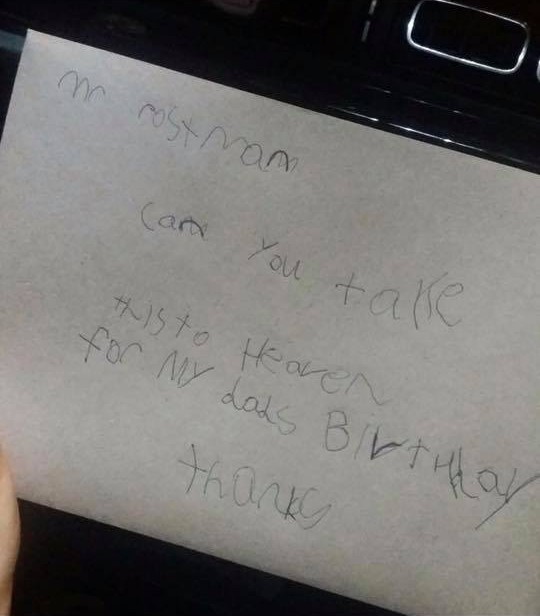 mr postman
can you take
this to Heaven
for my dads BirtHday
thanks